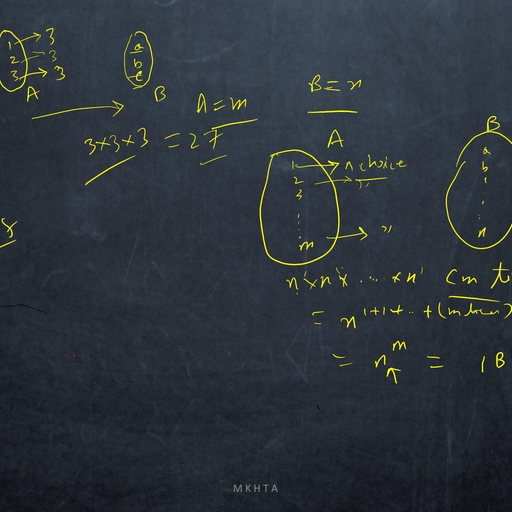 1 → 3
2 → 3
3 → 3
A
a
b
B
A = m
3×3×3 = 27
B = n
A
1 → n choice
2 → "
3
⋮
m → "
B
a
b
⋮
n
n¹×n¹× ... ×n¹
= n^1+1+..+(m times)
= n^m = |B
MKHTA